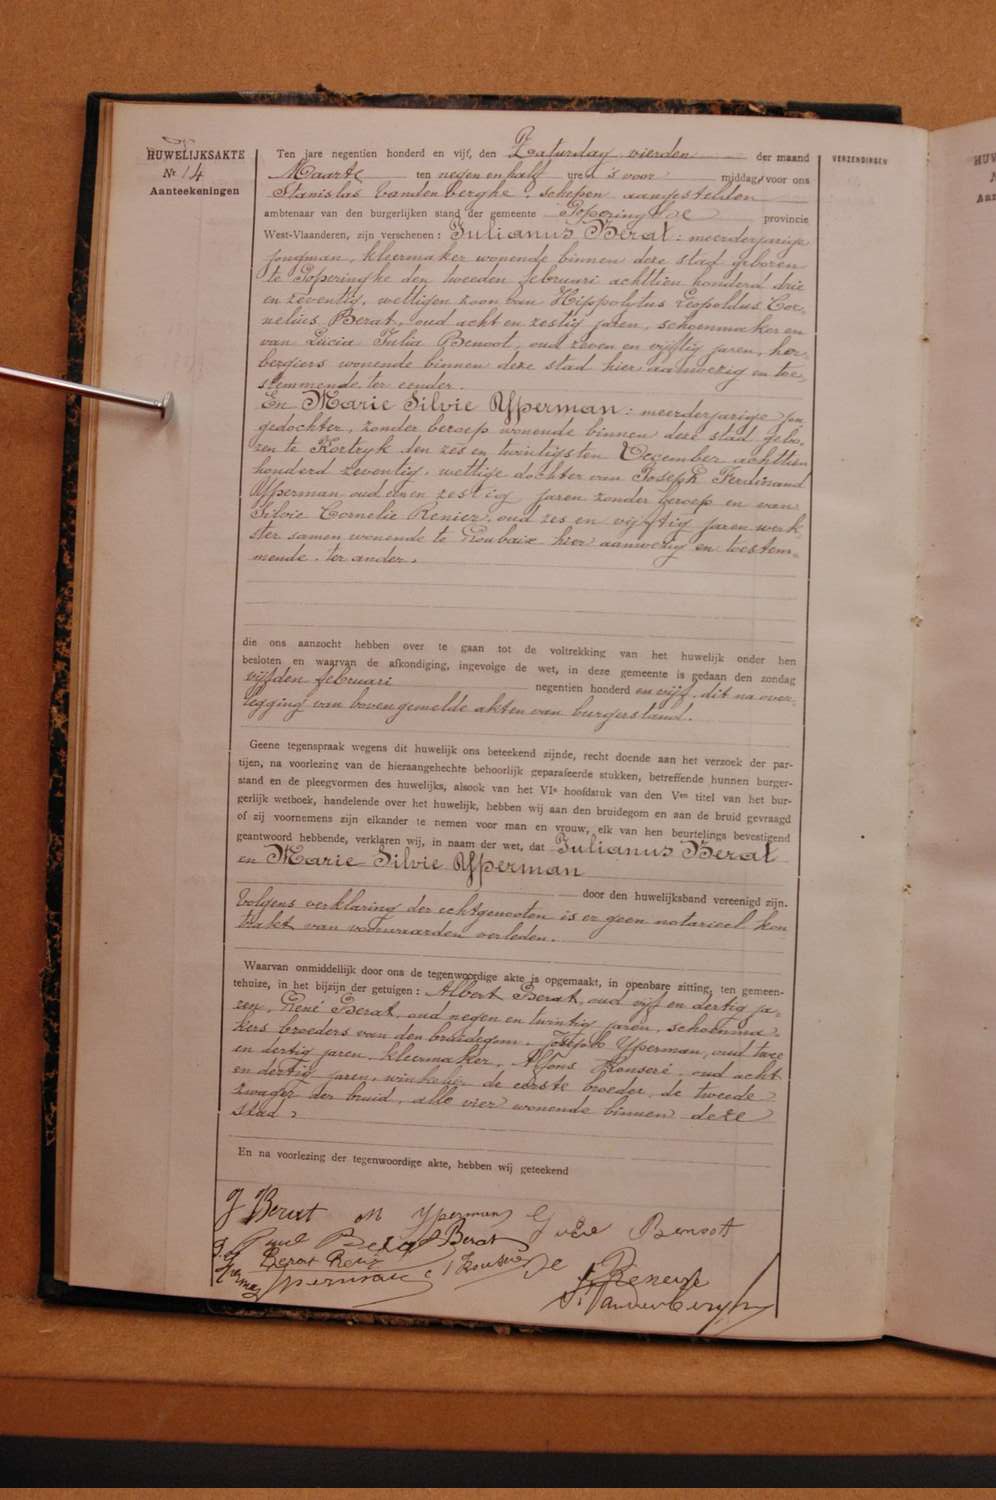 HUWELIJKSAKTE
Nr 14
Aanteekeningen
VERZENDINGEN
Ten jare negentien honderd en vijf, den Zaturdag vierden der maand
Maarte ten negen en half ure 's voor middag, voor ons
Stanislas Vandenberghe, schepen aangestelden
ambtenaar van den burgerlijken stand der gemeente Poperinghe provincie
West-Vlaanderen, zijn verschenen: Julianus Berat: meerderjarige
jongman, kleermaker wonende binnen deze stad geboren
te Poperinghe den tweeden februari achttien honderd drie
en zeventig, wettigen zoon van Hippolytus Leopoldus Cor-
nelius Berat, oud acht en zestig jaren, schoenmaker en
van Lucia Julia Benoot, oud zeven en vijftig jaren, her-
bergiers wonende binnen deze stad hier aanwezig en toe-
stemmende, ter eender.
En Marie Silvie Ypperman: meerderjarige jon-
gedochter, zonder beroep wonende binnen deze stad, gebo-
ren te Kortryk den zes en twintigsten December achttien
honderd zeventig, wettige dochter van Joseph Ferdinand
Ypperman oud een en zestig jaren zonder beroep en van
Silvie Cornelie Renier, oud zes en vijftig jaren werk-
ster samen wonende te Roubaix hier aanwezig en toestem-
mende. ter ander.
die ons aanzocht hebben over te gaan tot de voltrekking van het huwelijk onder hen
besloten en waarvan de afkondiging, ingevolge de wet, in deze gemeente is gedaan den zondag
vijfden februari negentien honderd en vijf, dit na over-
legging van bovengemelde akten van burgerstand.
Geene tegenspraak wegens dit huwelijk ons beteekend zijnde, recht doende aan het verzoek der par-
tijen, na voorlezing van de hieraangehechte behoorlijk geparafeerde stukken, betreffende hunnen burger-
stand en de pleegvormen des huwelijks, alsook van het VIe hoofdstuk van den Ven titel van het bur-
gerlijk wetboek, handelende over het huwelijk, hebben wij aan den bruidegom en aan de bruid gevraagd
of zij voornemens zijn elkander te nemen voor man en vrouw, elk van hen beurtelings bevestigend
geantwoord hebbende, verklaren wij, in naam der wet, dat Julianus Berat
en Marie Silvie Ypperman
door den huwelijksband vereenigd zijn.
Volgens verklaring der echtgenooten is er geen notarieel kon-
trakt van voorwaarden verleden.
Waarvan onmiddellijk door ons de tegenwoordige akte is opgemaakt, in openbare zitting, ten gemeen-
tehuize, in het bijzijn der getuigen: Albert Berat, oud vijf en dertig ja-
ren, René Berat, oud negen en twintig jaren, schoenma-
kers broeders van den bruidegom. Joseph Ypperman, oud twee
en dertig jaren, kleermaker, Alfons Konseré, oud acht
en dertig jaren, winkelier de eerste broeder, de tweede
zwager der bruid, alle vier wonende binnen deze
stad.
En na voorlezing der tegenwoordige akte, hebben wij geteekend
J Berat M Yperman Benoot
Berat
Berat René
Yperman
St Vandenberghe